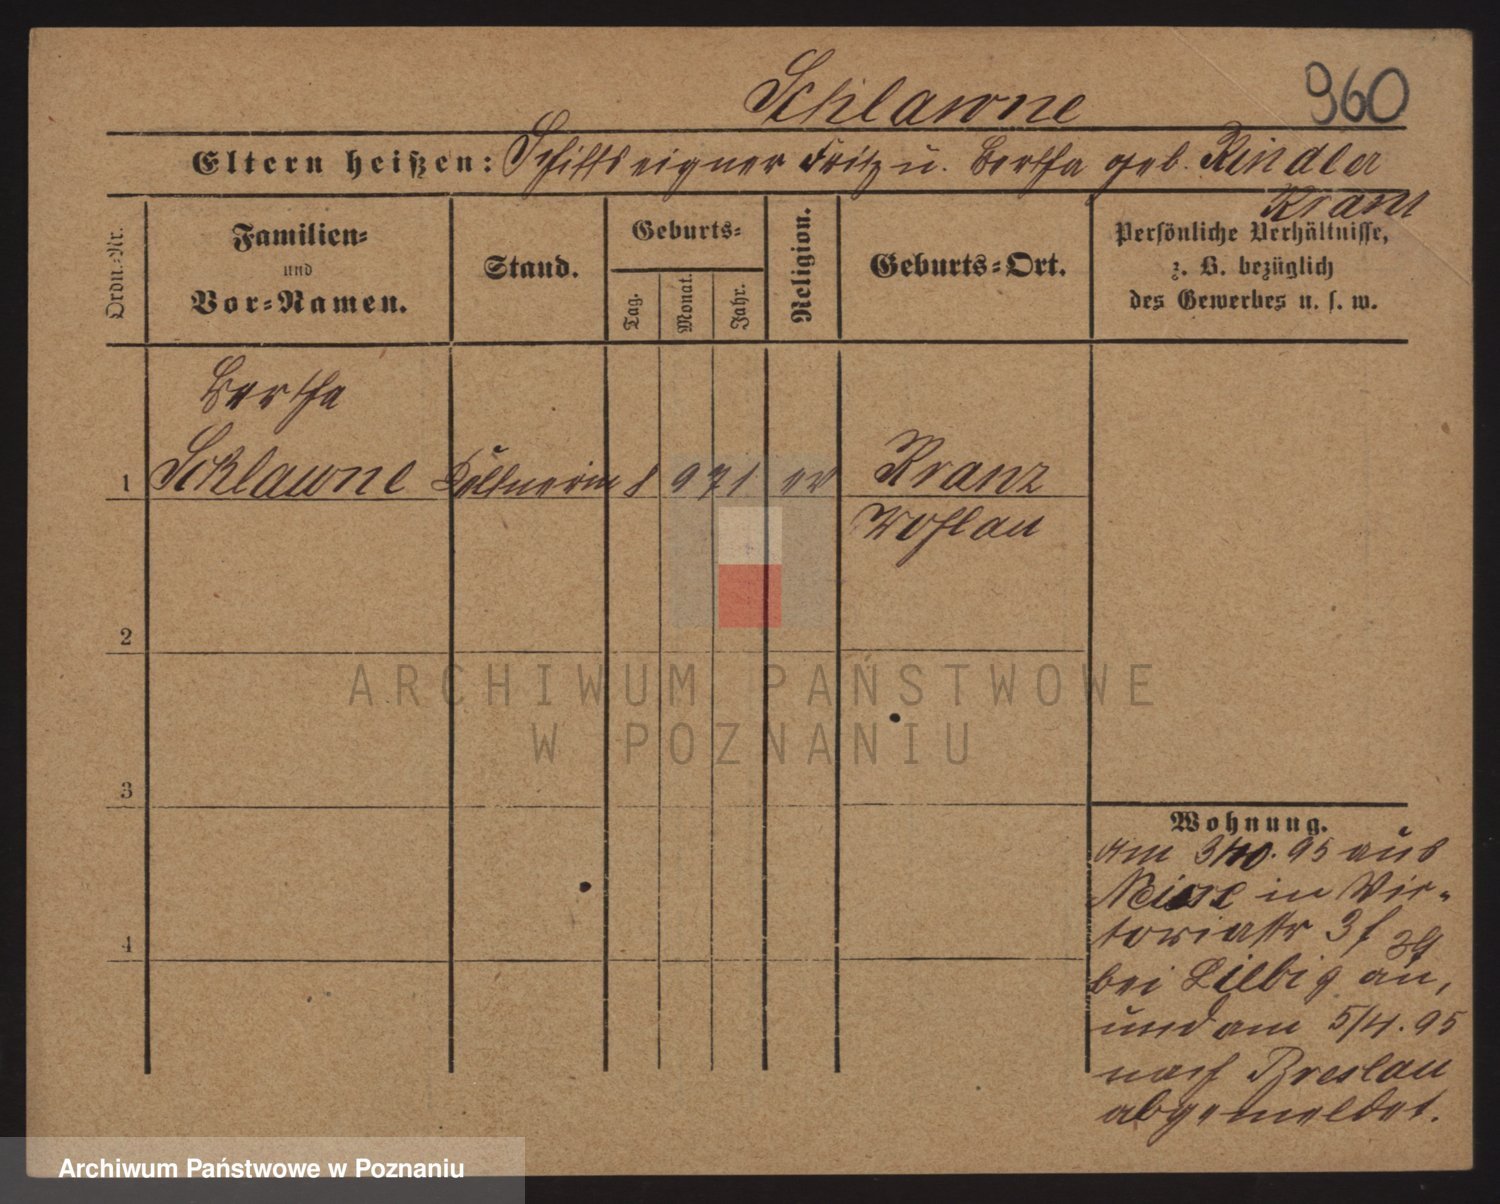 Schlawne
960
Eltern heißen: Schiffseigner Fritz u. Bertha geb. Rindler
Kranz
Ordn.-Nr.
Familien-
und
Vor-Namen.
Stand.
Geburts-
Tag.
Monat.
Jahr.
Religion.
Geburts-Ort.
Persönliche Verhältnisse,
z. B. bezüglich
des Gewerbes u. s. w.
Bertha
1 Schlawne Kellnerin 8 9 71 ev Kranz
Wohlau
2
3
4
Wohnung.
Am 3/10. 95 aus
Neisse in Vic-
toriastr 3 f
bei Liebig an,
und am 5/11. 95
nach Breslau
abgemeldet.
ARCHIWUM PAŃSTWOWE
W POZNANIU
Archiwum Państwowe w Poznaniu